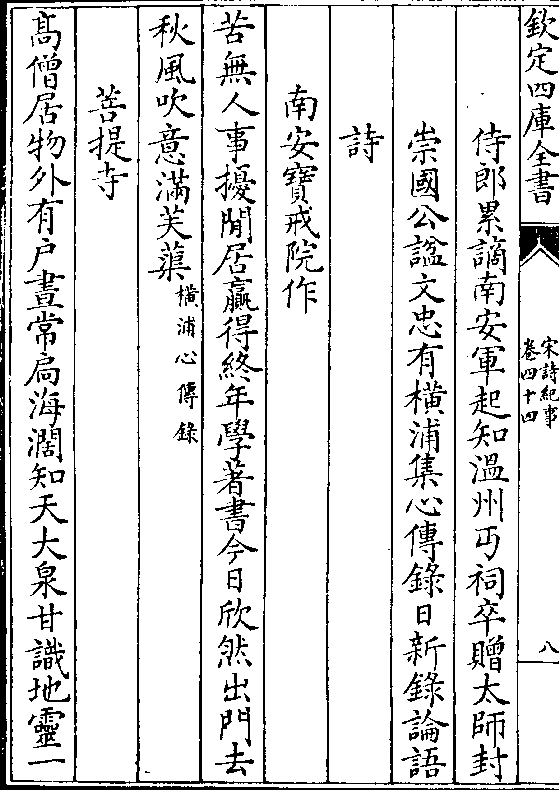 欽定四庫全書
宋詩紀事
卷四十四
八
侍郎累謫南安軍起知溫州丐祠卒贈太師封
崇國公諡文忠有橫浦集心傳錄日新錄論語
詩
南安寶戒院作
苦無人事擾閒居贏得終年學著書今日欣然出門去
秋風吹意滿芙蕖橫浦心傳錄
菩提寺
髙僧居物外有户晝常扃海濶知天大泉甘識地靈一